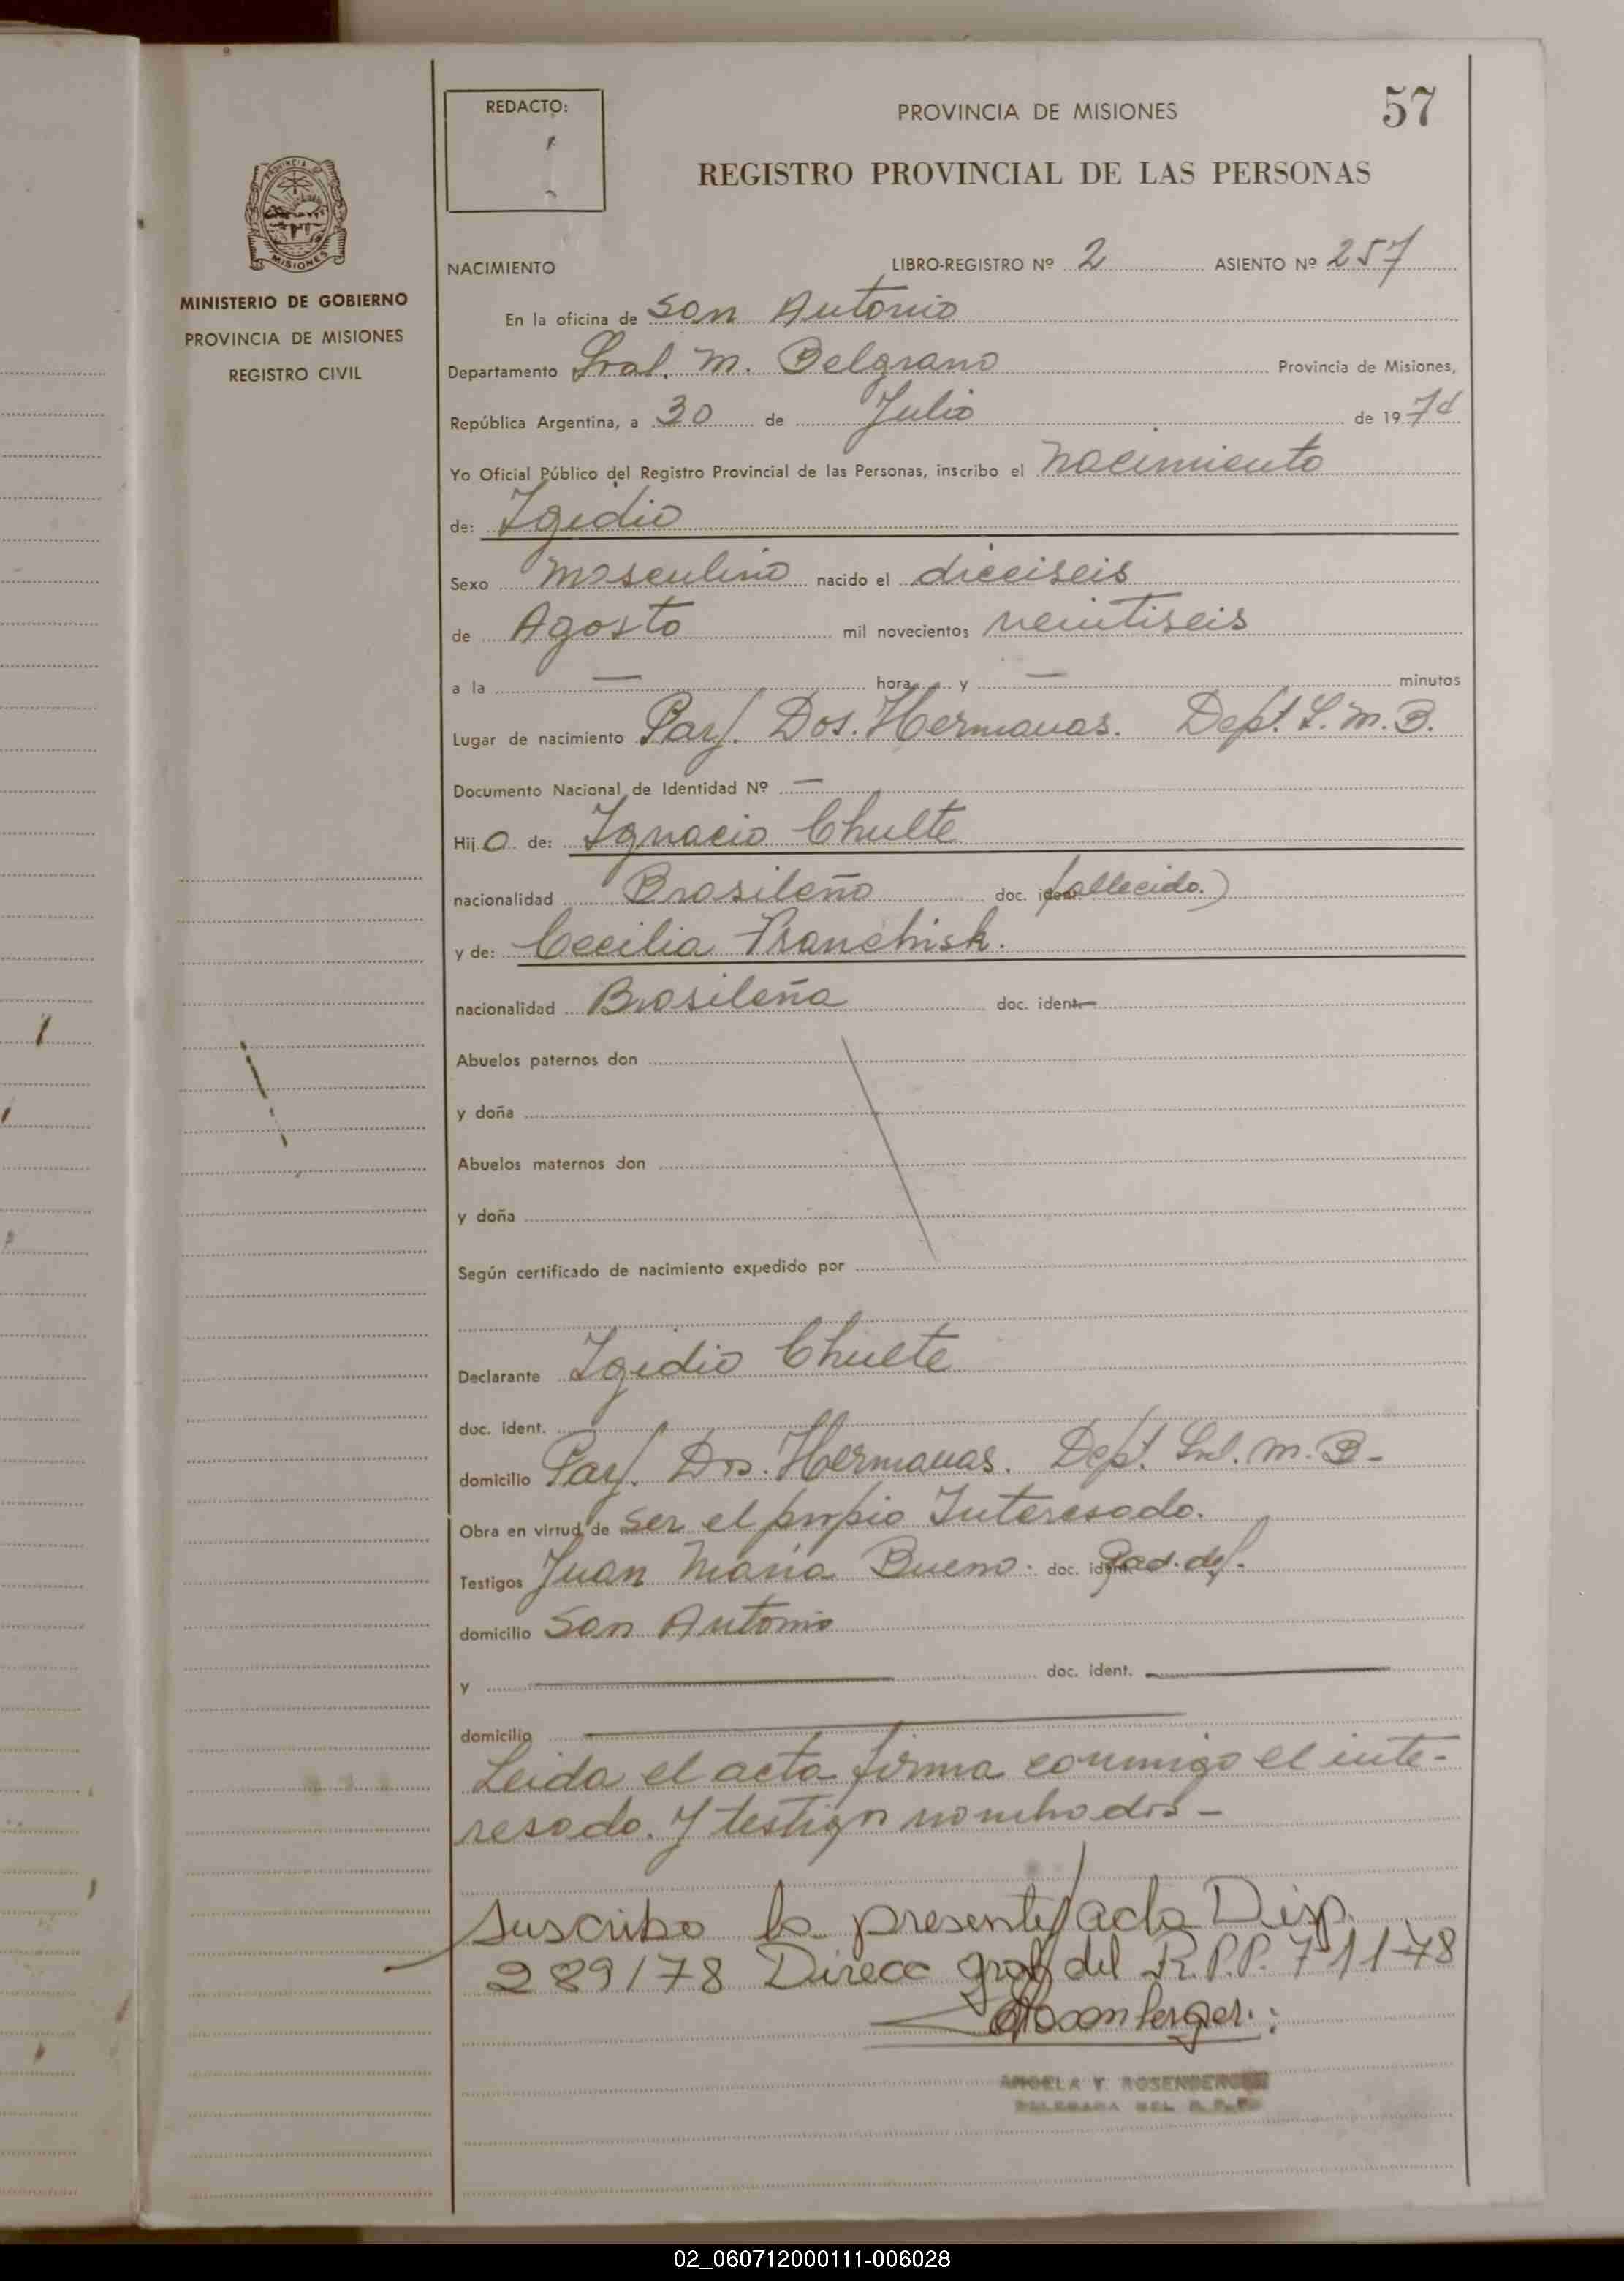 REDACTO:
PROVINCIA DE MISIONES
57
REGISTRO PROVINCIAL DE LAS PERSONAS
PROVINCIA
MISIONES
MINISTERIO DE GOBIERNO
PROVINCIA DE MISIONES
REGISTRO CIVIL
NACIMIENTO LIBRO-REGISTRO Nº 2 ASIENTO Nº 257
En la oficina de San Antonio
Departamento Gral. M. Belgrano Provincia de Misiones,
República Argentina, a 30 de Julio de 1974
Yo Oficial Público del Registro Provincial de las Personas, inscribo el nacimiento
de: Igidio
Sexo Masculino nacido el dieciseis
de Agosto mil novecientos veintiseis
a la — hora y — minutos
Lugar de nacimiento Parj. Dos. Hermanas. Dept. G. M. B.
Documento Nacional de Identidad Nº —
Hijo de: Ignacio Chulte
nacionalidad Brasileño doc. ident. (fallecido.)
y de: Cecilia Franchisk.
nacionalidad Brasileña doc. ident. —
Abuelos paternos don
y doña
Abuelos maternos don
y doña
Según certificado de nacimiento expedido por
Declarante Igidio Chulte
doc. ident.
domicilio Parj. Dos. Hermanas. Dept. Gral. M. B-
Obra en virtud de ser el propio Interesado.
Testigos Juan Maria Bueno. doc. ident.
domicilio San Antonio
y doc. ident.
domicilio
Leida el acta firma conmigo el inte-
resado. Y testigos nombrados -
Suscribo la presente acta Disp.
289/78 Direcc gral del R.P.P. 7-11-78
ANGELA Y. ROSENBERGER
DELEGADA DEL R.P.P.
02_060712000111-006028